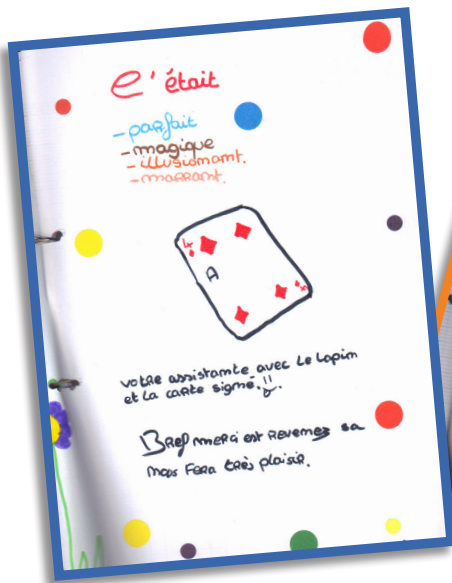 C'était
- parfait
- magique
- illusionant.
- marrant.
4
A
4
votre assistante avec le lapin
et la carte signé. !!
Bref merci est revenez sa
nous fera très plaisir.